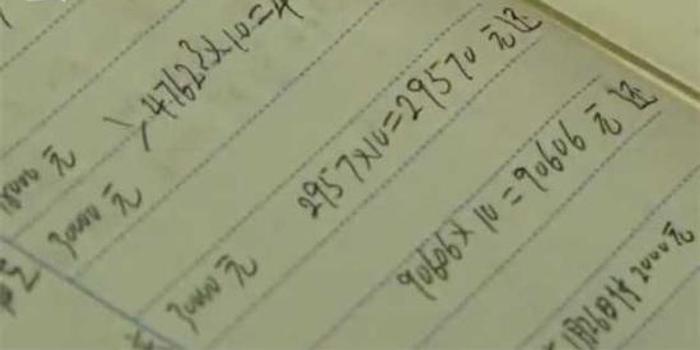 8000元
30000元
47623×10=4
30000元
2957×10=29570元还
90606×10=90606元还
2000元